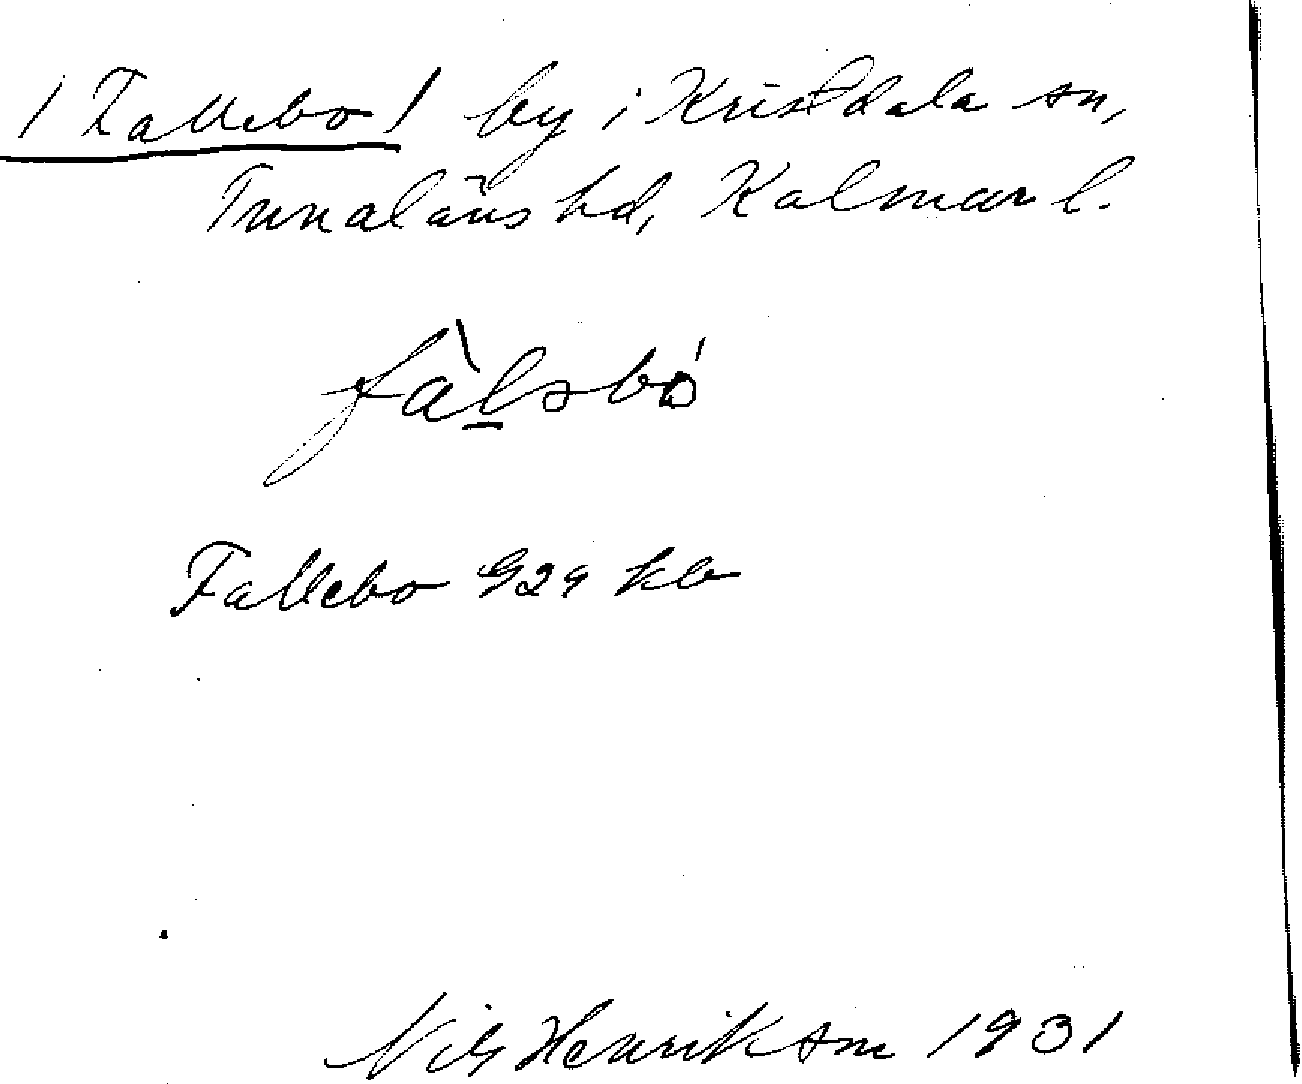 / Fallebo / by i Kristdala sn,
Tunaläns hd, Kalmar l.
fàlsbó
Fallebo G29 kb
Nils Henrikson 1931